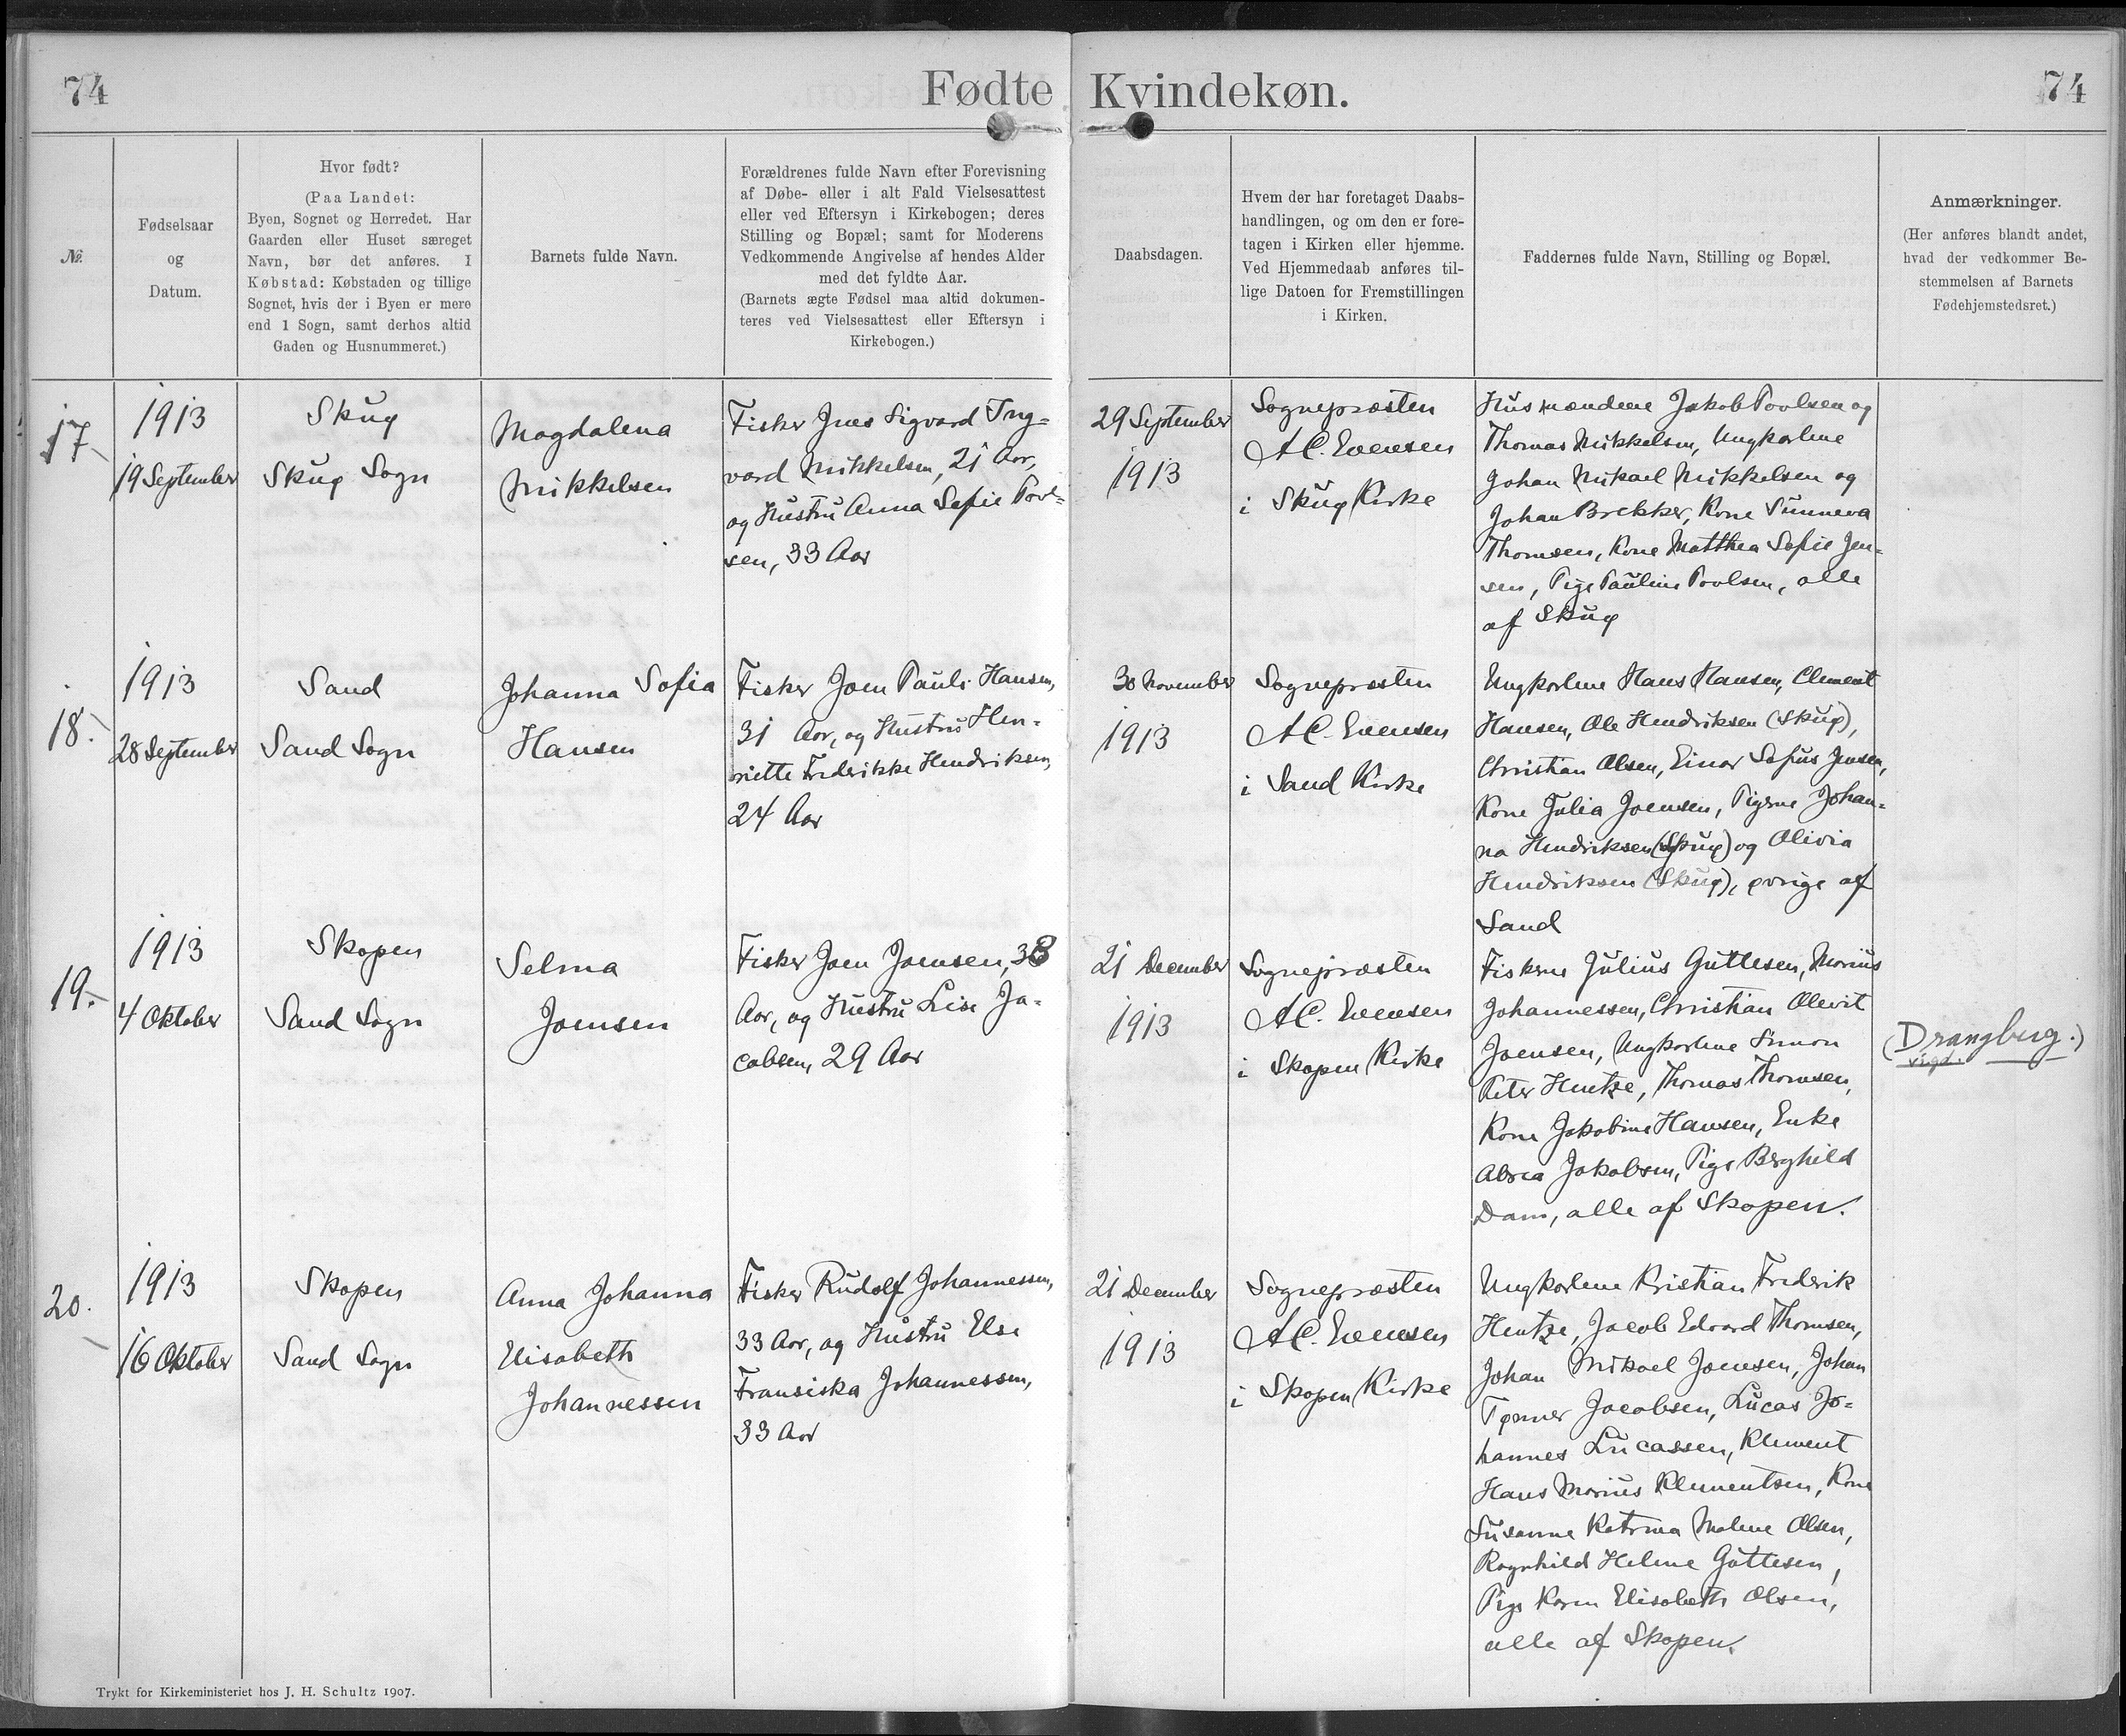 74
Fødte Kvindekøn.
74
№
Fødselsaar
og
Datum.
Hvor født?
(Paa Landet:
Byen, Sognet og Herredet. Har
Gaarden eller Huset særeget
Navn, bør det anføres. I
Købstad: Købstaden og tillige
Sognet, hvis der i Byen er mere
end 1 Sogn, samt derhos altid
Gaden og Husnummeret.)
Barnets fulde Navn.
Forældrenes fulde Navn efter Forevisning
af Døbe- eller i alt Fald Vielsesattest
eller ved Eftersyn i Kirkebogen; deres
Stilling og Bopæl; samt for Moderens
Vedkommende Angivelse af hendes Alder
med det fyldte Aar.
(Barnets ægte Fødsel maa altid dokumen-
teres ved Vielsesattest eller Eftersyn i
Kirkebogen.)
Daabsdagen.
Hvem der har foretaget Daabs-
handlingen, og om den er fore-
tagen i Kirken eller hjemme.
Ved Hjemmedaab anføres til-
lige Datoen for Fremstillingen
i Kirken.
Faddernes fulde Navn, Stilling og Bopæl.
Anmærkninger.
(Her anføres blandt andet,
hvad der vedkommer Be-
stemmelsen af Barnets
Fødehjemstedsret.)
17.
1913
19 September
Skuø
Skuø Sogn
Magdalena
Mikkelsen
Fisker Jens Sigvard Tryg-
vard Mikkelsen, 21 Aar,
og Hustru Anna Sofie Povl-
sen, 33 Aar
29 September
1913
Sognepræsten
A.C. Evensen
i Skuø Kirke
Husmændene Jakob Povlsen og
Thomas Mikkelsen, Ungkarlene
Johan Mikael Mikkelsen og
Johan Brekker, Kone Sunneva
Thomsen, Kone Matthea Sofie Jen-
sen, Pige Pauline Povlsen, alle
af Skuø
18.
1913
28 September
Sand
Sand Sogn
Johanna Sofia
Hansen
Fisker Joen Pauli Hansen,
31 Aar, og Hustru Hen-
riette Frederikke Hendriksen,
24 Aar
30 November
1913
Sognepræsten
A.C. Evensen
i Sand Kirke
Ungkarlene Hans Hansen, Clement
Hansen, Ole Hendriksen (Skuø),
Christian Olsen, Einar Sofus Jensen,
Kone Julia Joensen, Pigerne Johan-
na Hendriksen (Skuø) og Olivia
Hendriksen (Skuø), øvrige af
Sand
19.
1913
4 Oktober
Skopen
Sand Sogn
Selma
Joensen
Fisker Joen Joensen, 33
Aar, og Hustru Lise Ja-
cobsen, 29 Aar
21 December
1913
Sognepræsten
A.C. Evensen
i Skopen Kirke
Fiskerne Julius Guttesen, Marius
Johannessen, Christian Olevit
Joensen, Ungkarlene Simon
Peter Hentze, Thomas Thomsen,
Kone Jakobine Hansen, Enke
Jakobsen, Pige Berghild
Dam, alle af Skopen.
(Drangberg.)
vigd.
20.
1913
16 Oktober
Skopen
Sand Sogn
Anna Johanna
Elisabeth
Johannessen
Fisker Rudolf Johannessen,
33 Aar, og Hustru Else
Fransiska Johannessen,
33 Aar
21 December
1913
Sognepræsten
A.C. Evensen
i Skopen Kirke
Ungkarlene Kristian Frederik
Hentze, Jacob Edvard Thomsen,
Johan Mikael Joensen, Johan
Tørner Jacobsen, Lucas Jo-
hannes Lucassen, Klement
Hans Marius Klementsen, Kone
Susanne Katrina Malene Olsen,
Ragnhild Helene Guttesen,
Pige Karen Elisabeth Olsen,
alle af Skopen.
Trykt for Kirkeministeriet hos J. H. Schultz 1907.